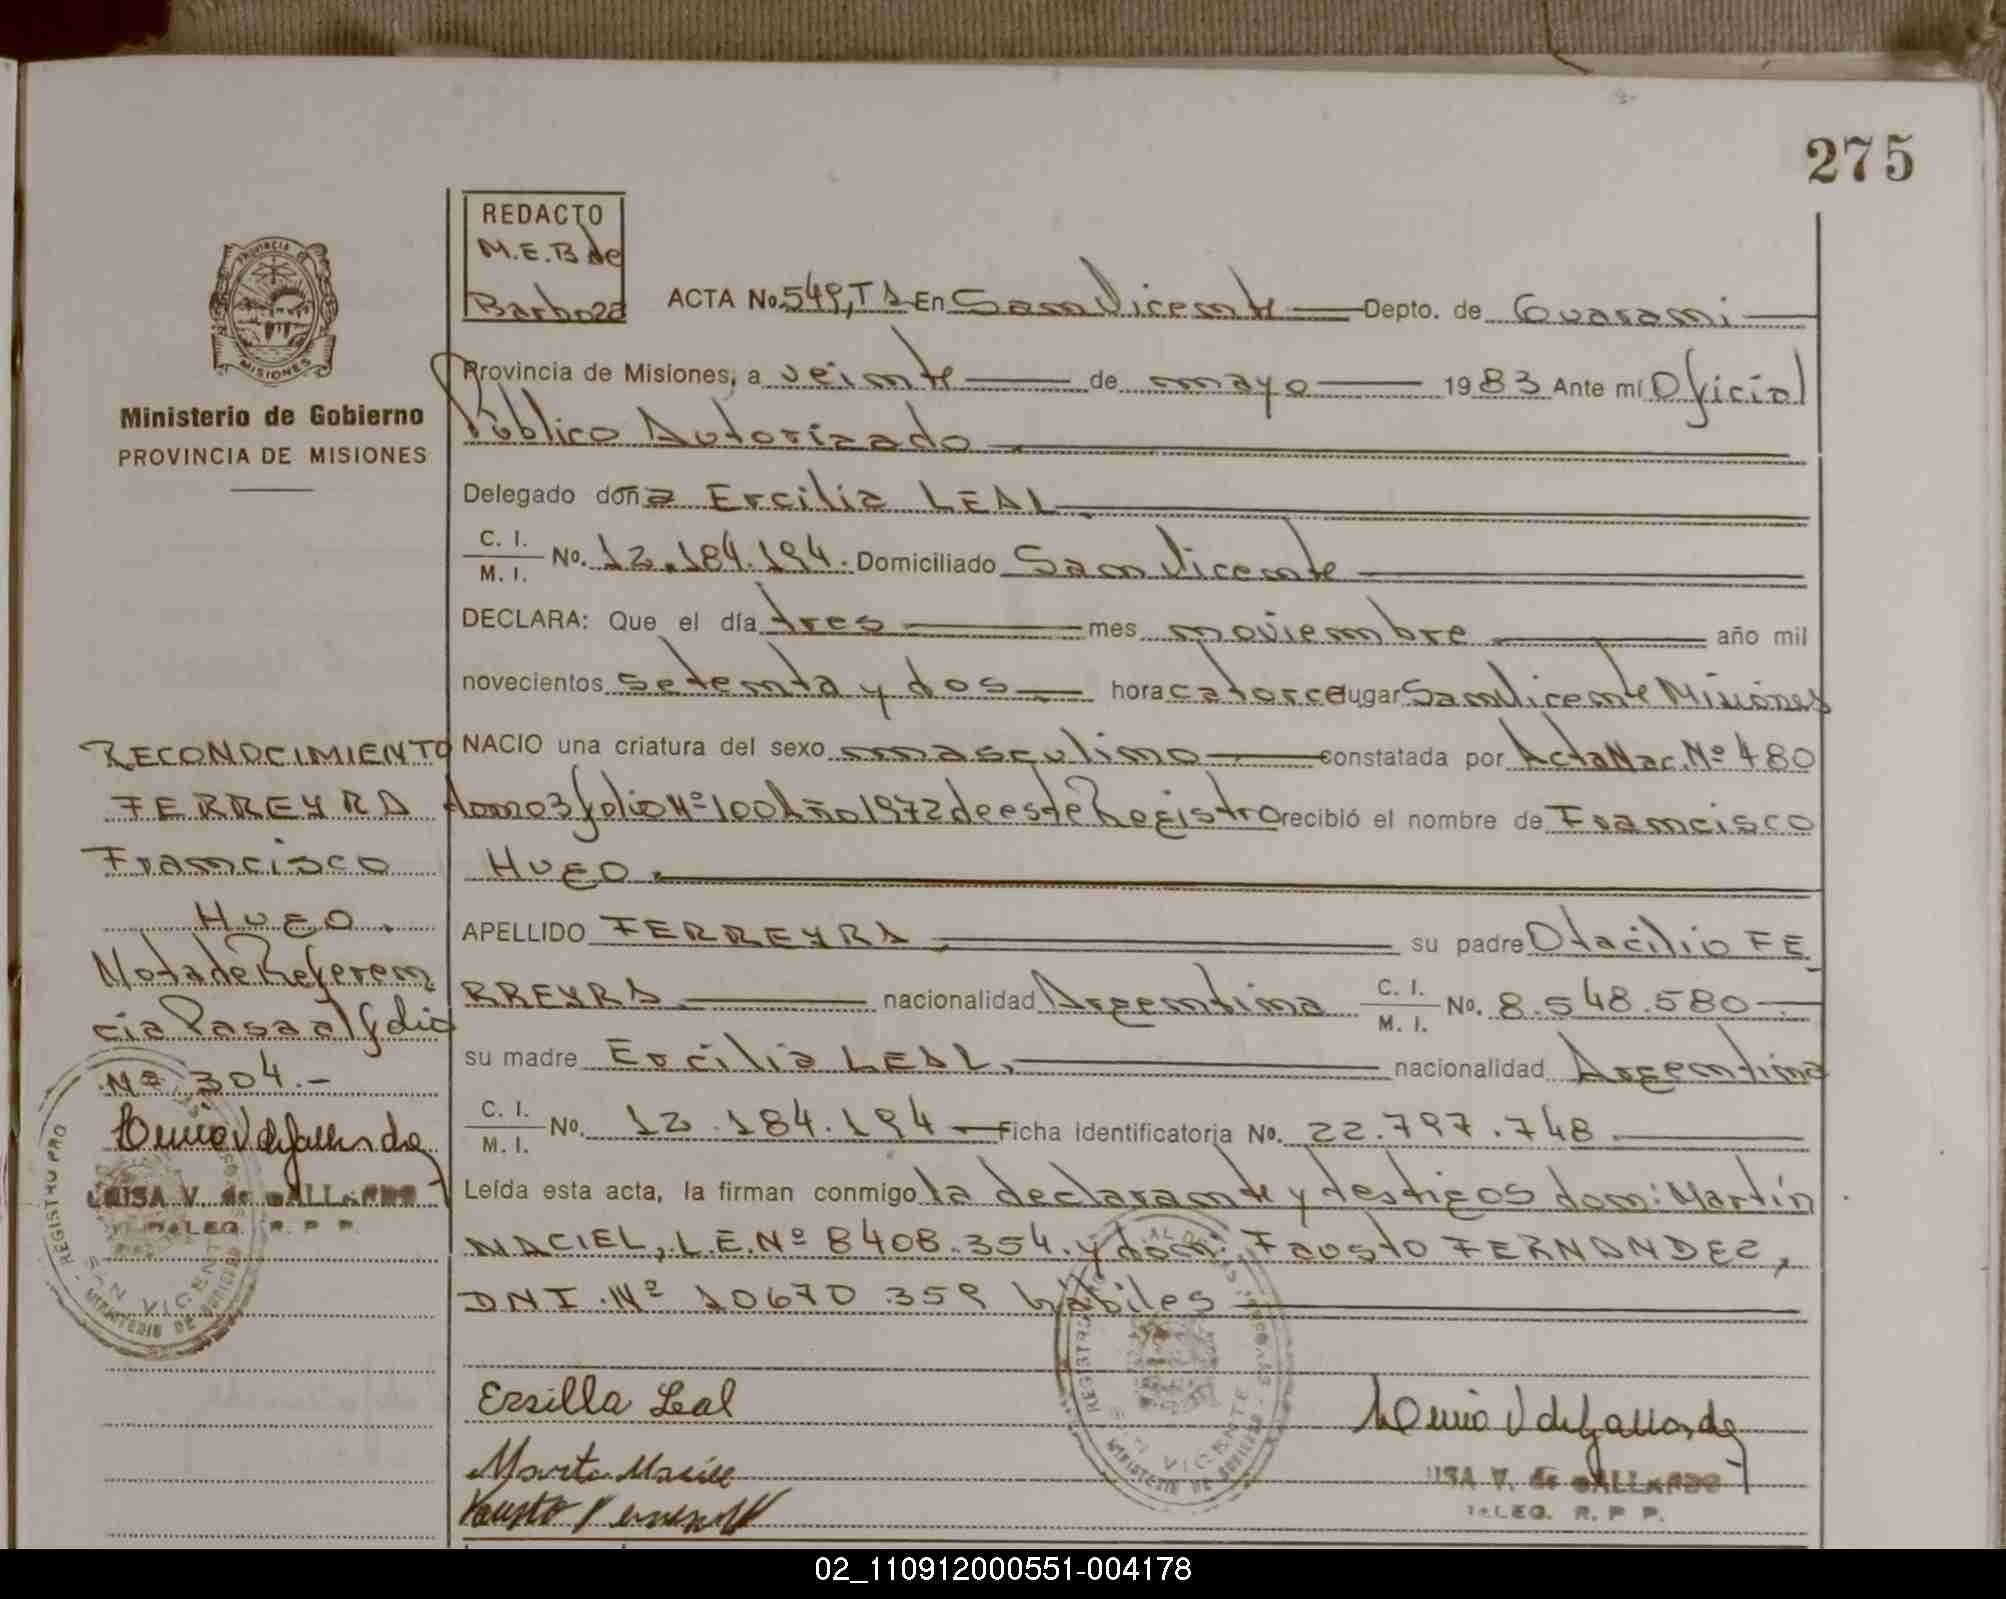 275
REDACTO
M.E.B de
Barboza
PROVINCIA
MISIONES
Ministerio de Gobierno
PROVINCIA DE MISIONES
ACTA No. 549, T1 En San Vicente Depto. de Guaraní
Provincia de Misiones, a veinte de mayo 1983 Ante mí Oficial
Público Autorizado
Delegado doña Ercilia LEAL
C. I. / M. I. No. 12.184.194. Domiciliado San Vicente
DECLARA: Que el día tres mes noviembre año mil
novecientos setenta y dos hora catorce lugar San Vicente Misiones
NACIO una criatura del sexo masculino constatada por Acta Nac. Nº 480
tomo 3 folio Nº 100 Año 1972 de este Registro recibió el nombre de Francisco
HUGO.
APELLIDO FERREYRA su padre Otacilio FE
RREYRA nacionalidad Argentina C. I. / M. I. No. 8.548.580
su madre Ercilia LEAL, nacionalidad Argentina
C. I. / M. I. No. 12.184.194 Ficha identificatoria No. 22.797.748
Leída esta acta, la firman conmigo la declarante y testigos don: Martín
MACIEL, L.E. Nº 8408.354. y don: Fausto FERNANDEZ,
DNI. Nº 10670.359 hábiles
RECONOCIMIENTO
FERREYRA
Francisco
HUGO.
Nota de Referen
cia Pasa al folio
Nº 304.-
LUISA V. de GALLARDO
DELEG. R. P. P.
REGISTRO PRO
SAN VICENTE
MINISTERIO DE GOBIERNO
Ersilla Leal
V. de GALLARDO
DELEG. R. P. P.
VICENTE
MINISTERIO DE GOBIERNO
02_110912000551-004178